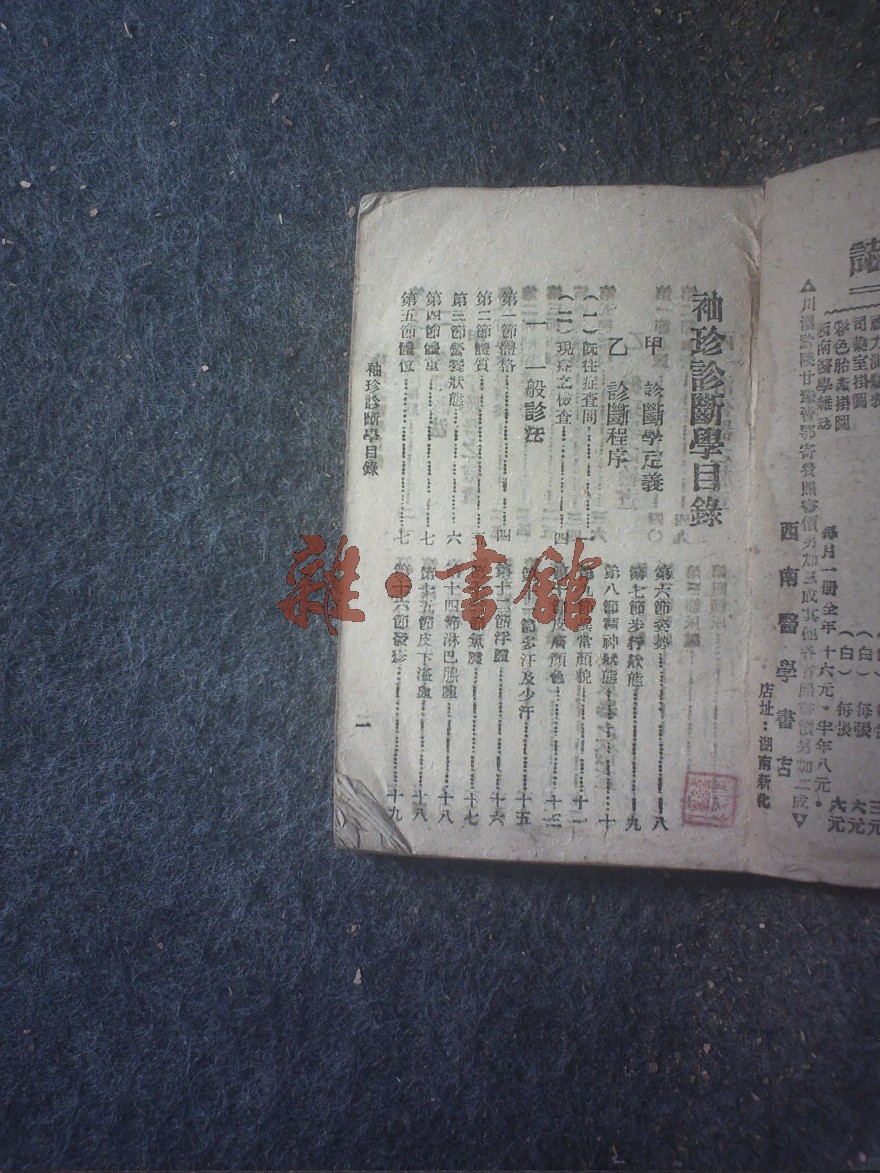 視力測驗表
司藥室掛圖
彩色胎產掛圖
西南醫學雜誌
三元
(白) 每張 六元
(白) 每張 六元
每月一册全年十六元。半年八元。
西南醫學書店
店址:湖南新化
袖珍診斷學目錄
甲 診斷學定義
乙 診斷程序
(一)既往症查問
(二)現症之檢查 四
一 一般診法
第一節體格 四
第二節體質 五
第三節營養狀態 六
第四節體重 七
第五節體位 七
第六節姿勢 八
第七節步行狀態 九
第八節精神狀態 十
第九節異常顏貌 十一
第十節皮膚顏色 十二
第十一節多汗及少汗 十五
第十二節浮腫 十六
第十三節氣腫 十七
第十四節淋巴腺腫 十八
第十五節皮下溢血 十八
第十六節發疹 十九
袖珍診斷學目錄
二
雜·書館